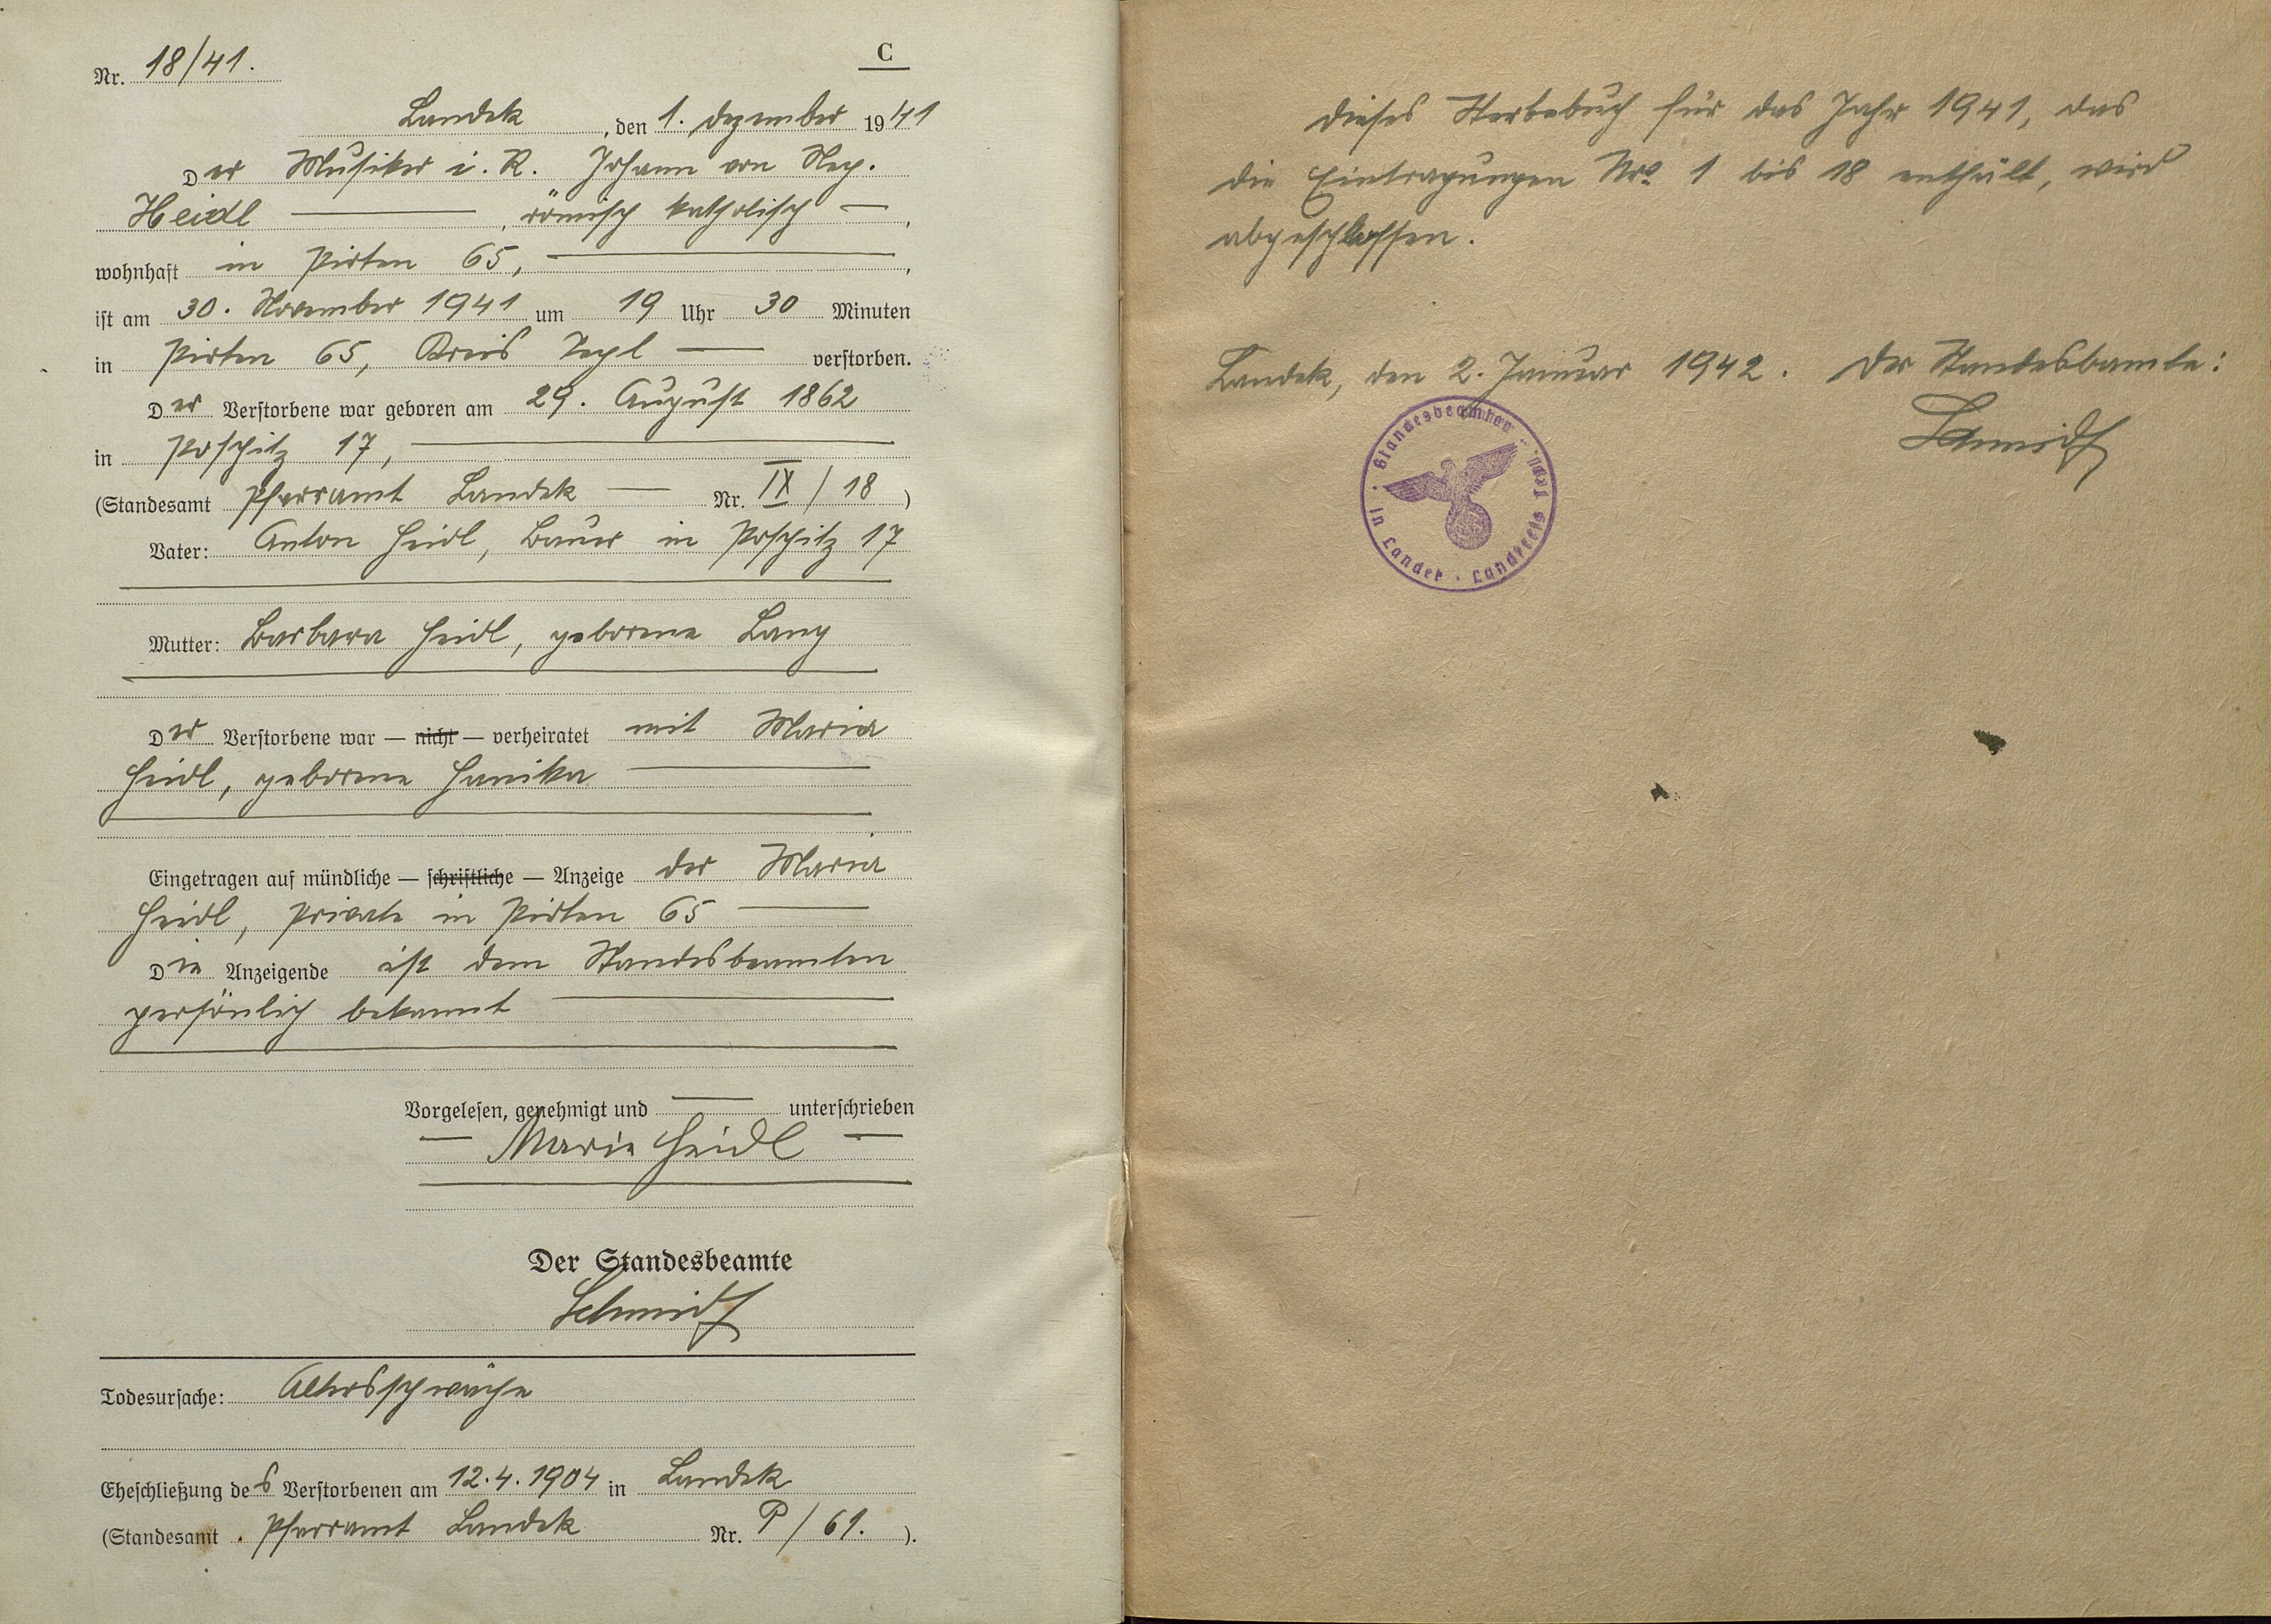 Nr. 18/41.
C
Landek, den 1. Dezember 1941
Der Musiker i. R. Johann von Nep.
Heidl, römisch katholisch,
wohnhaft in Pirten 65,
ist am 30. November 1941 um 19 Uhr 30 Minuten
in Pirten 65, Kreis Tepl verstorben.
Der Verstorbene war geboren am 29. August 1862
in Poschitz 17,
(Standesamt Pfarramt Landek Nr. IX / 18)
Vater: Anton Heidl, Bauer in Poschitz 17
Mutter: Barbara Heidl, geborene Lang
Der Verstorbene war — nicht — verheiratet mit Maria
Heidl, geborene Hanika
Eingetragen auf mündliche — schriftliche — Anzeige der Maria
Heidl, Private in Pirten 65
Die Anzeigende ist dem Standesbeamten
persönlich bekannt
Vorgelesen, genehmigt und unterschrieben
Marie Heidl
Der Standesbeamte
Schmidt
Todesursache: Altersschwäche
Eheschließung des Verstorbenen am 12.4.1904 in Landek
(Standesamt Pfarramt Landek Nr. P / 61.).
Dieses Sterbebuch für das Jahr 1941, das
die Eintragungen Nro 1 bis 18 enthält, wird
abgeschlossen.
Landek, den 2. Januar 1942. Der Standesbeamte:
Schmidt
in Landek · Landkreis Tepl